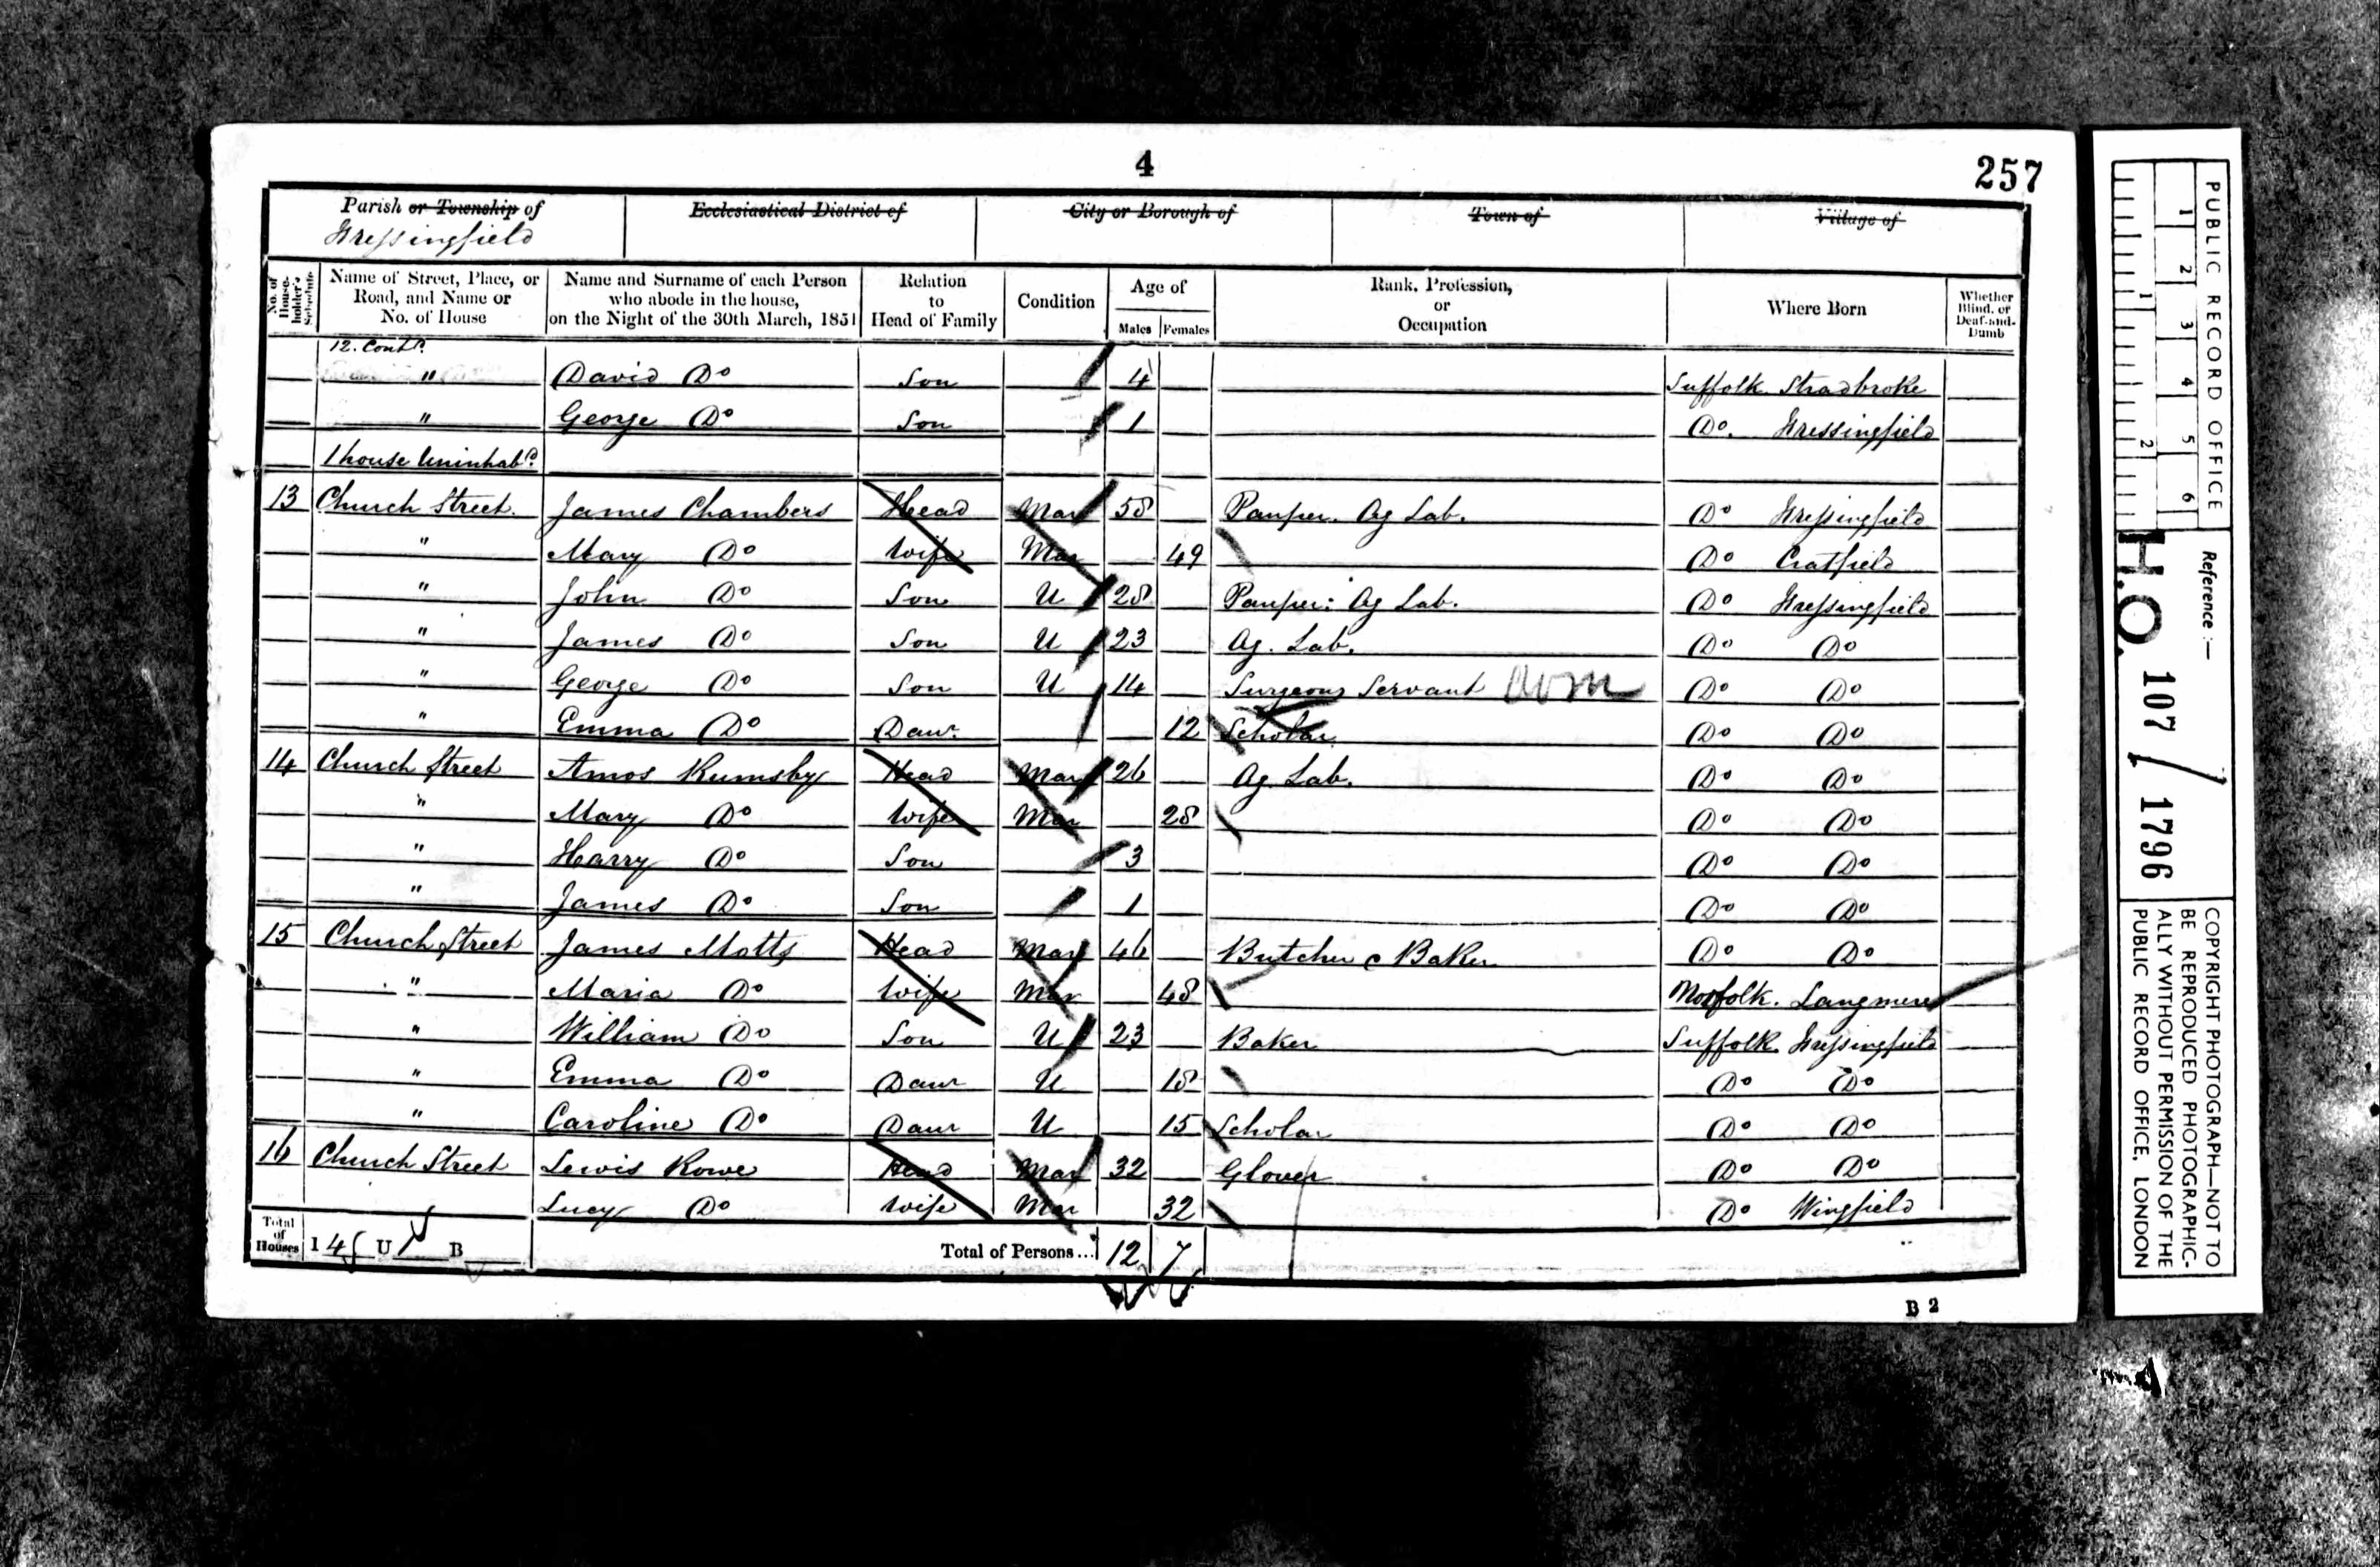 4
257
Parish or Township of
Fressingfield
Ecclesiastical District of
City or Borough of
Town of
Village of
No. of House-holder's Schedule
Name of Street, Place, or Road, and Name or No. of House
Name and Surname of each Person who abode in the house, on the Night of the 30th March, 1851
Relation to Head of Family
Condition
Age of
Males Females
Rank, Profession, or Occupation
Where Born
Whether Blind, or Deaf-and-Dumb
12. Contd.
" David Do Son 4 Suffolk Stradbroke
" George Do Son 1 Do. Fressingfield
1 house Uninhabd.
13 Church Street. James Chambers Head Mar 58 Pauper. Ag Lab. Do Fressingfield
" Mary Do Wife Mar 49 Do Cratfield
" John Do Son U 28 Pauper: Ag Lab. Do Fressingfield
" James Do Son U 23 Ag. Lab. Do Do
" George Do Son U 14 Surgeons Servant Dom Do Do
" Emma Do Daur. 12 Scholar Do Do
14 Church Street Amos Rumsby Head Mar 26 Ag. Lab. Do Do
" Mary Do Wife Mar 28 Do Do
" Harry Do Son 3 Do Do
" James Do Son 1 Do Do
15 Church Street James Motts Head Mar 46 Butcher & Baker Do Do
" Maria Do Wife Mar 48 Norfolk. Langmere
" William Do Son U 23 Baker Suffolk. Fressingfield
" Emma Do Daur U 18 Do Do
" Caroline Do Daur U 15 Scholar Do Do
16 Church Street Lewis Rowe Head Mar 32 Glover Do Do
" Lucy Do Wife Mar 32 Do Wingfield
Total of Houses I 4 U 1 B
Total of Persons... 12 7
B 2
PUBLIC RECORD OFFICE
1 2 3 4 5 6
1 2
Reference :—
H.O. 107 / 1796
COPYRIGHT PHOTOGRAPH—NOT TO
BE REPRODUCED PHOTOGRAPHIC-
ALLY WITHOUT PERMISSION OF THE
PUBLIC RECORD OFFICE, LONDON